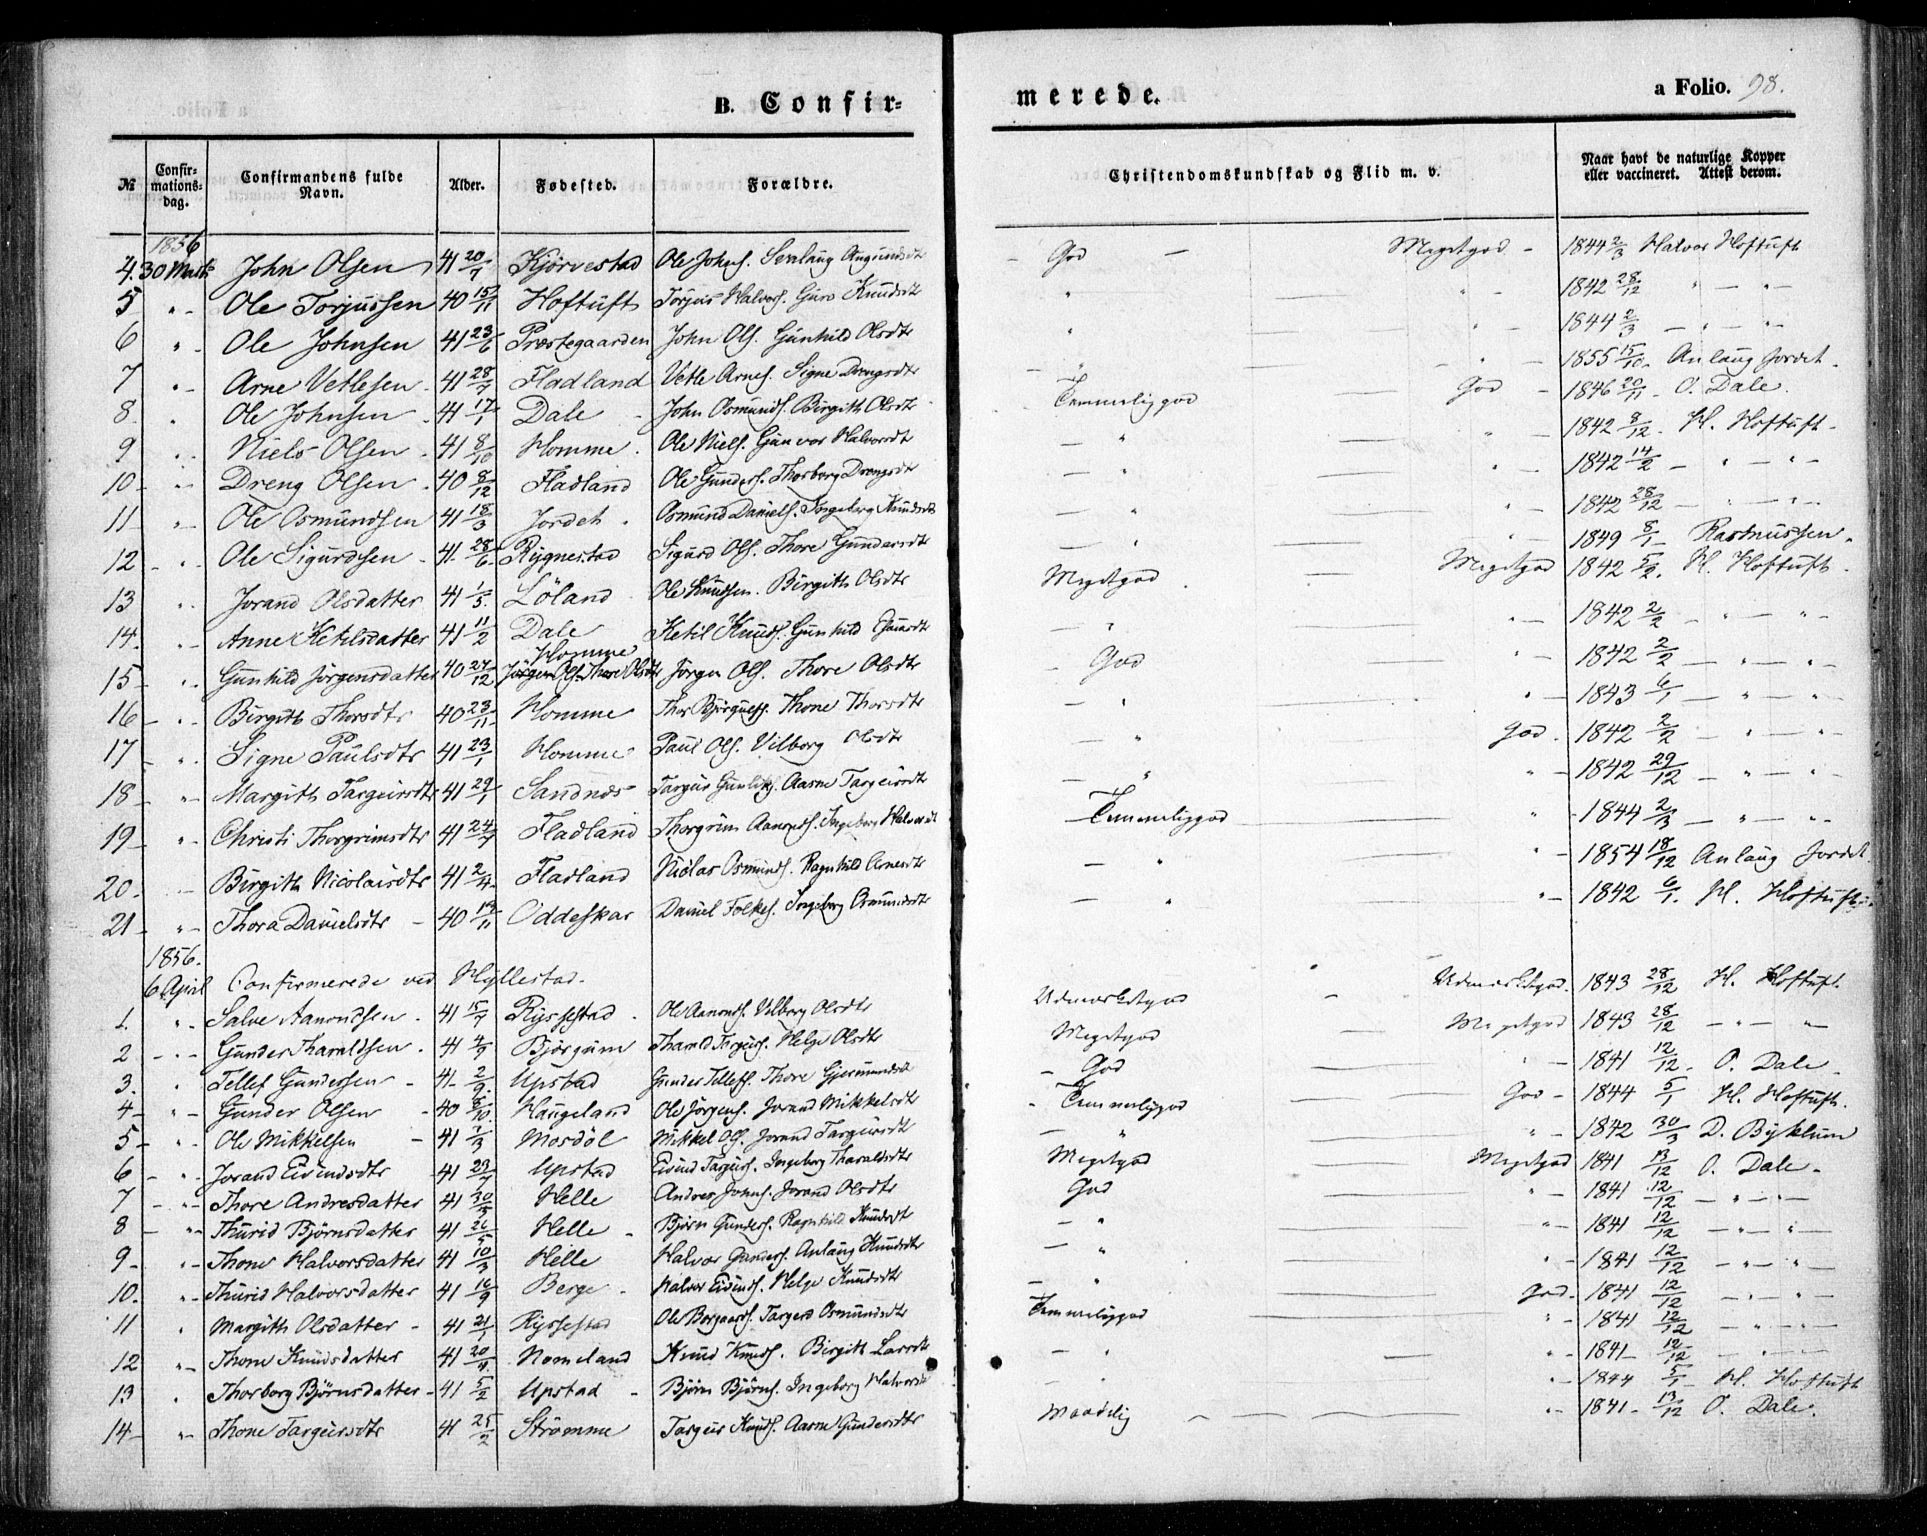 B. Confir- merede. a Folio. 98.
№ Confir-mations-dag. Confirmandens fulde Navn. Alder. Fødested. Forældre. Christendomskundskab og Flid m. v. Naar havt de naturlige Kopper eller vaccineret. Attest derom.
1856
4. 30 Marts John Olsen 41 20/7 Kjörvestad Ole Johns. God — Megetgod - 1844 2/3 Halvor Hoftuft
5 " - Ole Torjussen 40 15/11 Hoftuft Torjus Halvors. Guro Knudsdt " — " - 1842 28/12 " — " -
6 " - Ole Johnsen 41 23/6 Præstegaarden John Ols. Gunhild Olsdt " — " - 1844 2/3 — " — " -
7 " - Arne Vetlesen - 41 28/7 Fladland Vetle Arnes. Signe Drengsdt - " — " - 1855 15/10 - Anlaug Jordet.
8. " Ole Johnsen 41 17/1 Dale John Osmunds. Birgith Olsdt - Temmeliggod — God - 1846 20/11 - O. Dale.
9 " - Niels Olsen - 41 8/10 Homme. Ole Niels. Gunvor Halvorsdt — " — " - 1842 8/12 - H. Hoftuft -
10 - " - Dreng Olsen - 40 8/12 Fladland Ole Gunders. Thorborg Drengsdt — " — " - 1842 14/2 — " — " -
11 - " - Ole Osmundsen 41 18/3 Jordet. Osmund Daniels. Ingeborg Knudsdt — " — " - 1842 28/12 — " — " -
12 - " - Ole Sigurdsen - 41 28/6 Rygnestad Sigurd Ols. Thore Gundersdt — " — " - 1849 8/1 - Rasmussen.
13 " - Jorand Olsdatter 41 1/5. Löland Ole Knudsen. Birgith Olsdt Megetgod — Megetgod 1842 5/2. H. Hoftuft.
14. " - Anne Ketilsdatter 41 11/2 Dale Ketil Knuds. Gunhild — " — " - 1842 2/2 — " — " -
15 - " - Gunhild Jörgensdatter 40 27/12 Homme Jörgen Ols. Thore Olsdt Jörgen Ols. Thore Olsdt - God — " - 1842 2/2 — " — " -
16 - " - Birgith Thorsdtr 40 23/11 Homme Thor Björgulfs. Thone Thorsdt - " — " - 1843 6/1 — " — " -
17 - " - Signe Paulsdtr 41 23/1 Homme Paul Ols. Vilborg Olsdt — " — God. 1842 2/2 — " — " -
18 - " - Margith Targeirsdtr 41 29/1 Sandnes Targeir Gunleiks. Aasne Targeirsdt — " — " - 1842 29/12 — " — " -
19 - " - Christi Thorgrimsdtr 41 24/7 Fladland Thorgrim Aanonds. Ingeborg Halvorsdt — Temmeliggod — " - 1844 2/3 — " — " -
20. — Birgith Nicolaisdtr 41 2/4 Fladland Niolas Osmunds. Ragnhild Arnesdt — " — " - 1854 18/12 Anlaug Jordet
21 - " - Thora Danielsdtr - 40 19/11 Oddeskar Daniel Folkes. Ingeborg Osmundsdt " — " - 1842 6/1. H. Hoftuft.
1856.
6 April Confirmerede ved Hyllestad.
1. " - Salve Aanondsen - 41 15/7 Ryssestad. Ole Aanonds. Vilborg Olsdt Udmærketgod — Udmærketgod. 1843 28/12 H. Hoftuft
2 - " - Gunder Tharaldsen. 41 4/9 Björgum Tharald Targeirs. Helge Olsdt Megetgod — Megetgod 1843 28/12 — " — " -
3. " Tellef Gundersen - 41 - 2/9. Upstad Gunder Tellefs. Thore Gjermundsdt - God — " - 1841 12/12. O. Dale -
4 - " - Gunder Olsen - 40 8/10. Haugeland Ole Jörgens. Jorand Mikkelsdt - Temmeliggod — God - 1844 5/1 H. Hoftuft.
5 - " - Ole Mikkelsen - 41 7/3 Mosdöl Mikkel Ols. Jorand Targeirsdt — " — " - 1842 30/3 D. Byklum
6 - " - Jorand Eivindsdtr 41 23/7 Upstad Eivind Targeirs. Ingeborg Tharaldsdt Megetgod — Megetgod 1841 13/12 O. Dale -
7 - " - Thore Andresdatter 41 30/5 Helle Andres Johns. Jorand Olsdt God — " - 1841 12/12 — " — " -
8 - " - Thurid Björnsdatter 41 26/5 Helle - Björn Gunders. Ragnhild Knudsdt - " — " - 1841 12/12 — " — " -
9 - " - Thone Halvorsdatter 41 10/3 Helle Halvor Gunders. Anlaug Knudsdt — " — " - 1841 12/12 — " — " -
10. " - Thurid Halvorsdatter 41 16/9 Berge - Halvor Eivinds. Helge Knudsdt — " — God - 1841 12/12 — " — " -
11 " Margith Olsdatter - 41 21/1 Ryssestad Ole Borgaards. Targerd Osmundsdt Temmeliggod — " - 1841 12/12 — " — " -
12 " - Thone Knudsdatter 41 20/4. Nomeland Knud Knuds. Birgith Larsdt — " — " - 1841 - 12/12 — " — " -
13 " Thorborg Björnsdatter - 41 5/2 Upstad - Björn Björns. Ingeborg Halvorsdt - " — " - 1844 5/1 - H. Hoftuft
14 - " - Thone Targeirsdtr 41 25/2 Strömme Targeir Knuds. Aasne Gundersdtr Maadelig — " - 1841 - 13/12 O. Dale.